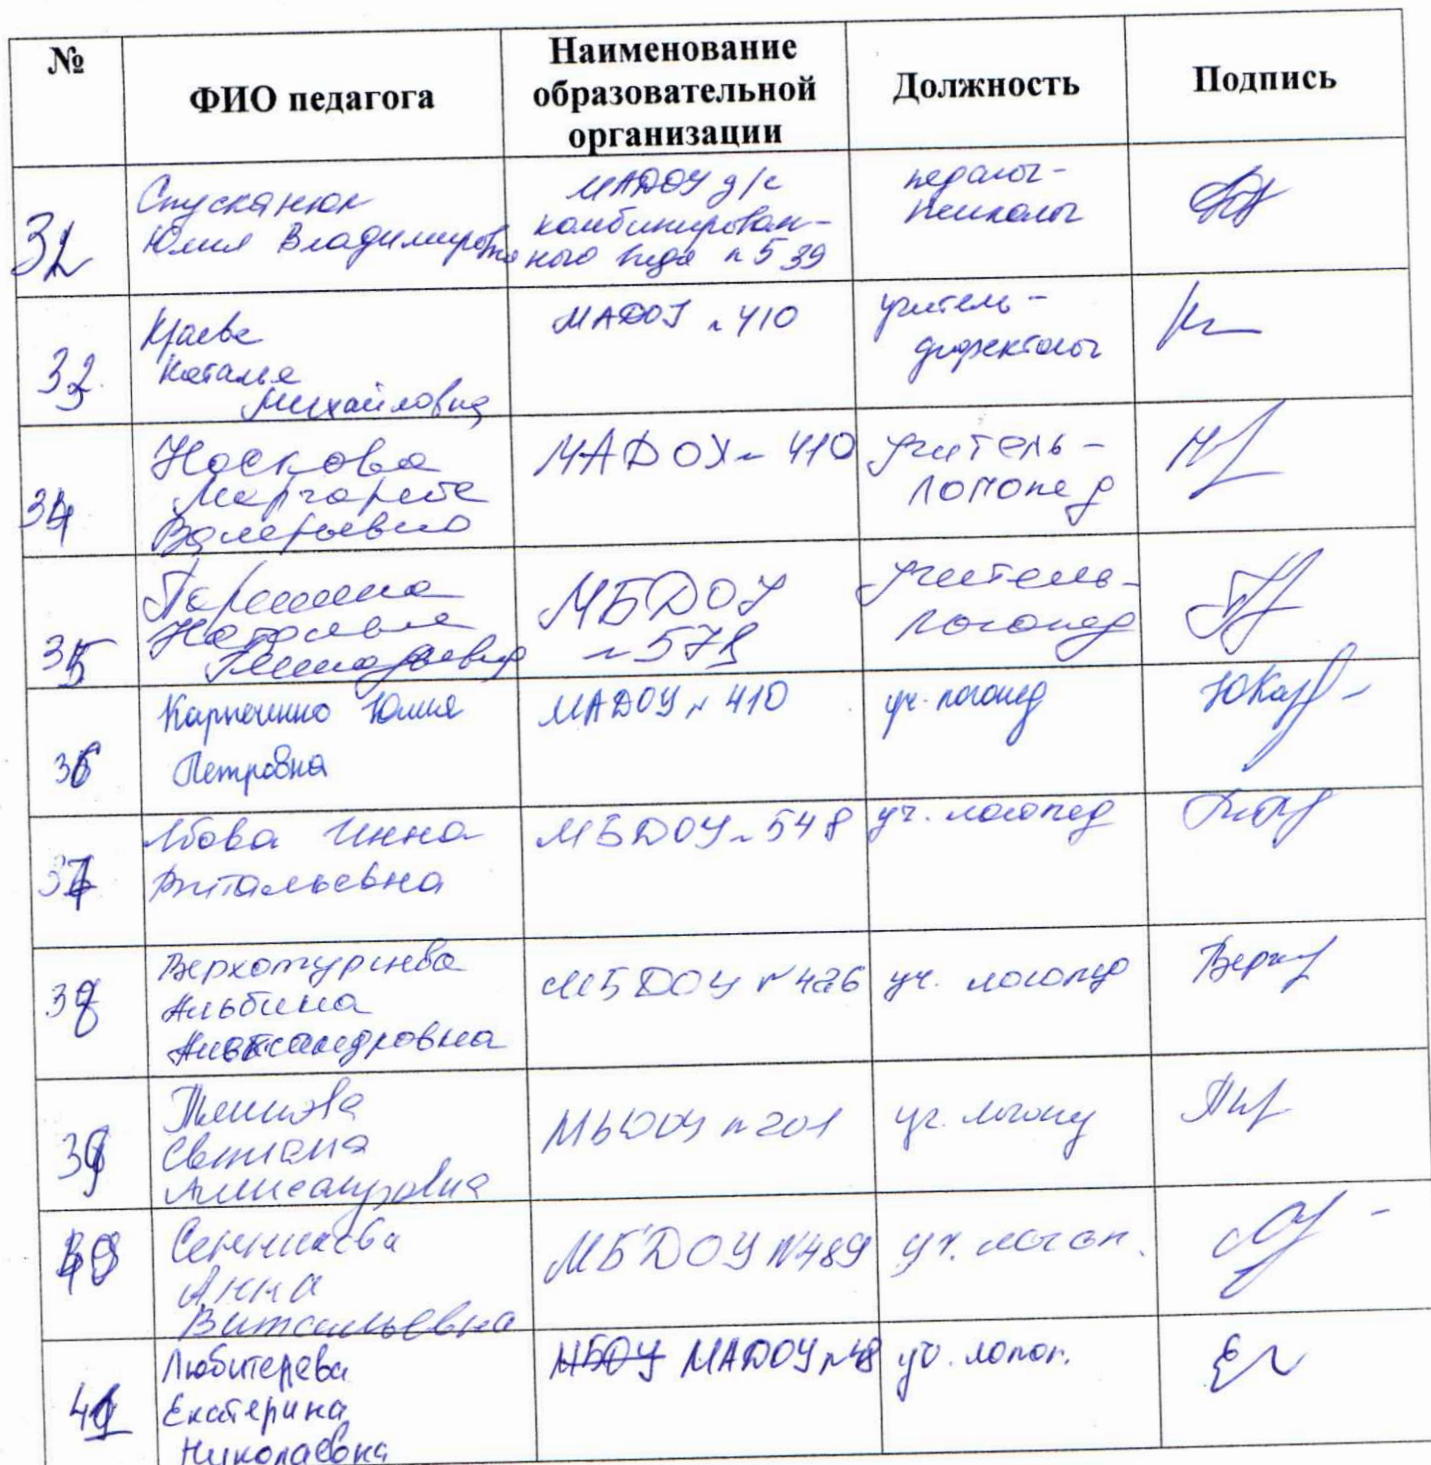 №
ФИО педагога
Наименование
образовательной
организации
Должность
Подпись
32
Спусканюк
Юлия Владимировна
МАДОУ д/с
комбинирован-
ного вида №539
педагог-
психолог
33
Краева
Наталья
Михайловна
МАДОУ №410
учитель-
дефектолог
34
Носкова
Маргарита
Валерьевна
МАДОУ №410
учитель-
логопед
35
Паршина
Наталья
Геннадьевна
МБДОУ
учитель-
логопед
36
Карпоченко Юлия
Петровна
МАДОУ №410
уч. логопед
37
Инна
Витальевна
МБДОУ №548
уч. логопед
38
Верхотурцева
Альбина
Александровна
МБДОУ №426
уч. логопед
39
Светлана
Александровна
МБДОУ №201
уч. логопед
40
Анна
Витальевна
МБДОУ №489
уч. логоп.
41
Любитерева
Екатерина
Николаевна
МБОУ МАДОУ №48
уч. логоп.